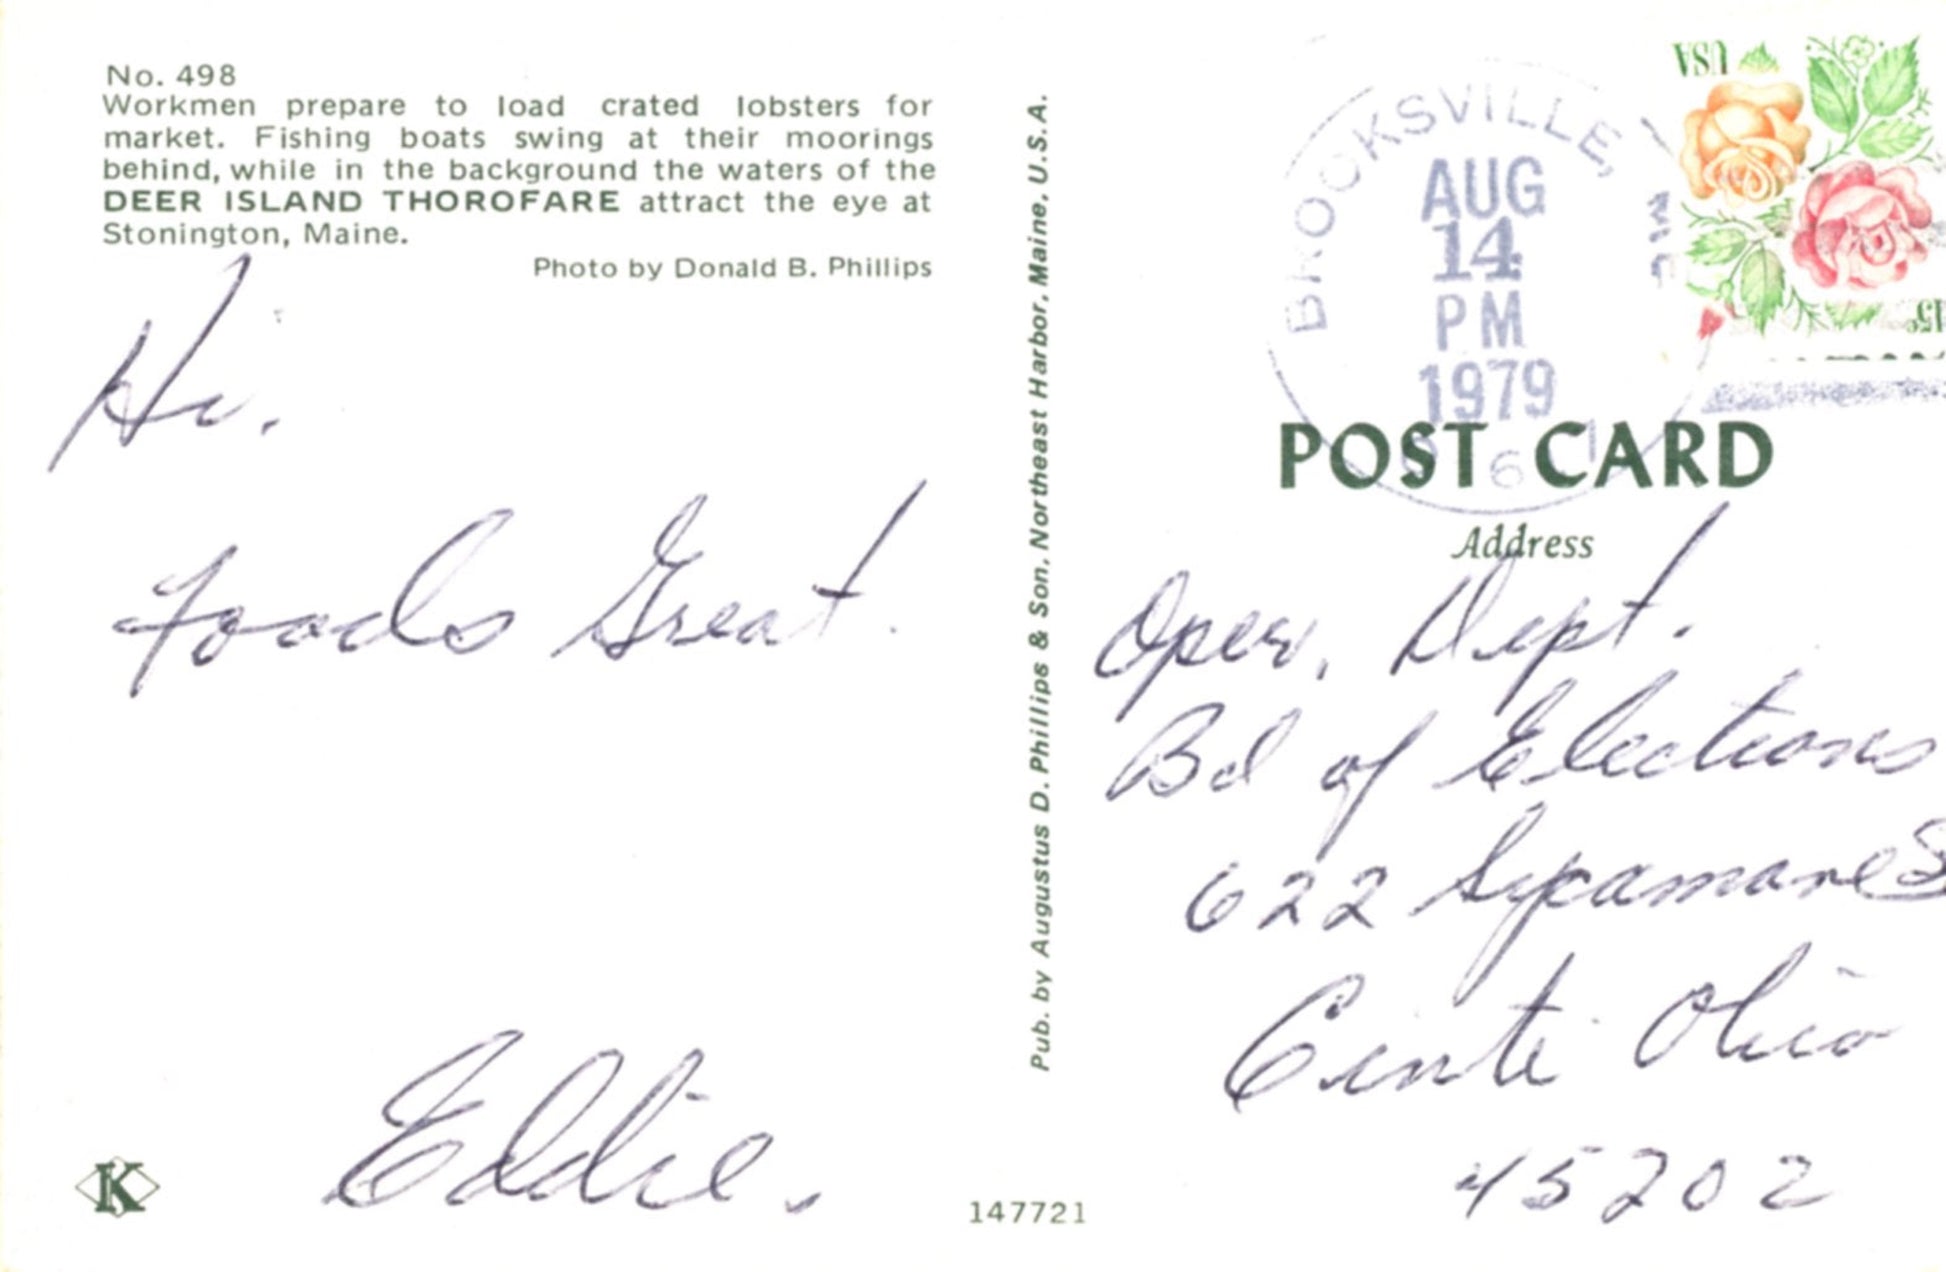 No. 498
Workmen prepare to load crated lobsters for
market. Fishing boats swing at their moorings
behind, while in the background the waters of the
DEER ISLAND THOROFARE attract the eye at
Stonington, Maine.
Photo by Donald B. Phillips
Hi.
Foods Great.
Eddie.
K
Pub. by Augustus D. Phillips & Son, Northeast Harbor, Maine, U.S.A.
147721
BROOKSVILLE,
AUG
14
PM
1979
USA
15c
POST CARD
Address
Oper. Dept.
Bd of Elections
622 Sycamore S
Cinti Ohio
45202